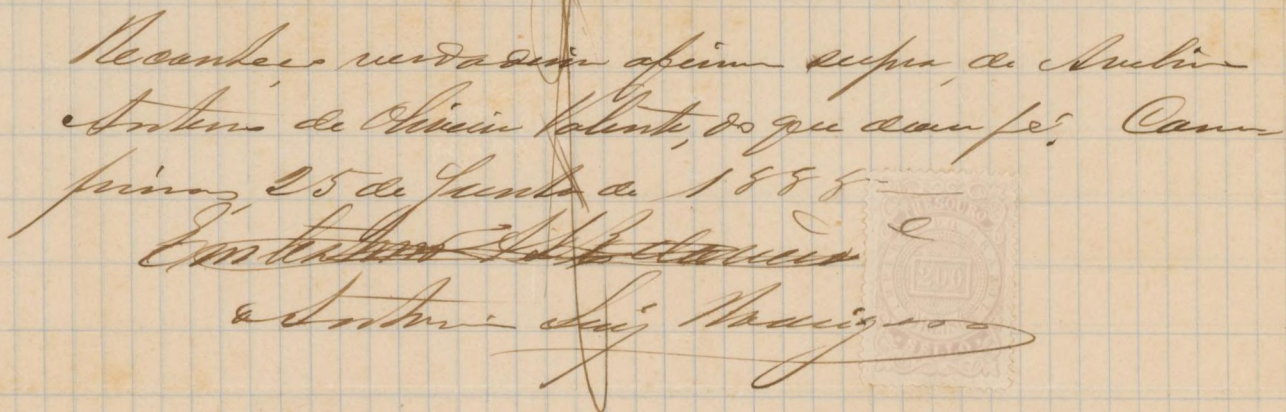 Reconheço verdadeira afirma supra, de Avelino
Antero de Oliveira Valente, do que dou fé. Cam-
pinas, 25 de Junho de 1888
Em testemunho da verdade
Antonio Luiz Rodrigues
THESOURO
200
SELLO